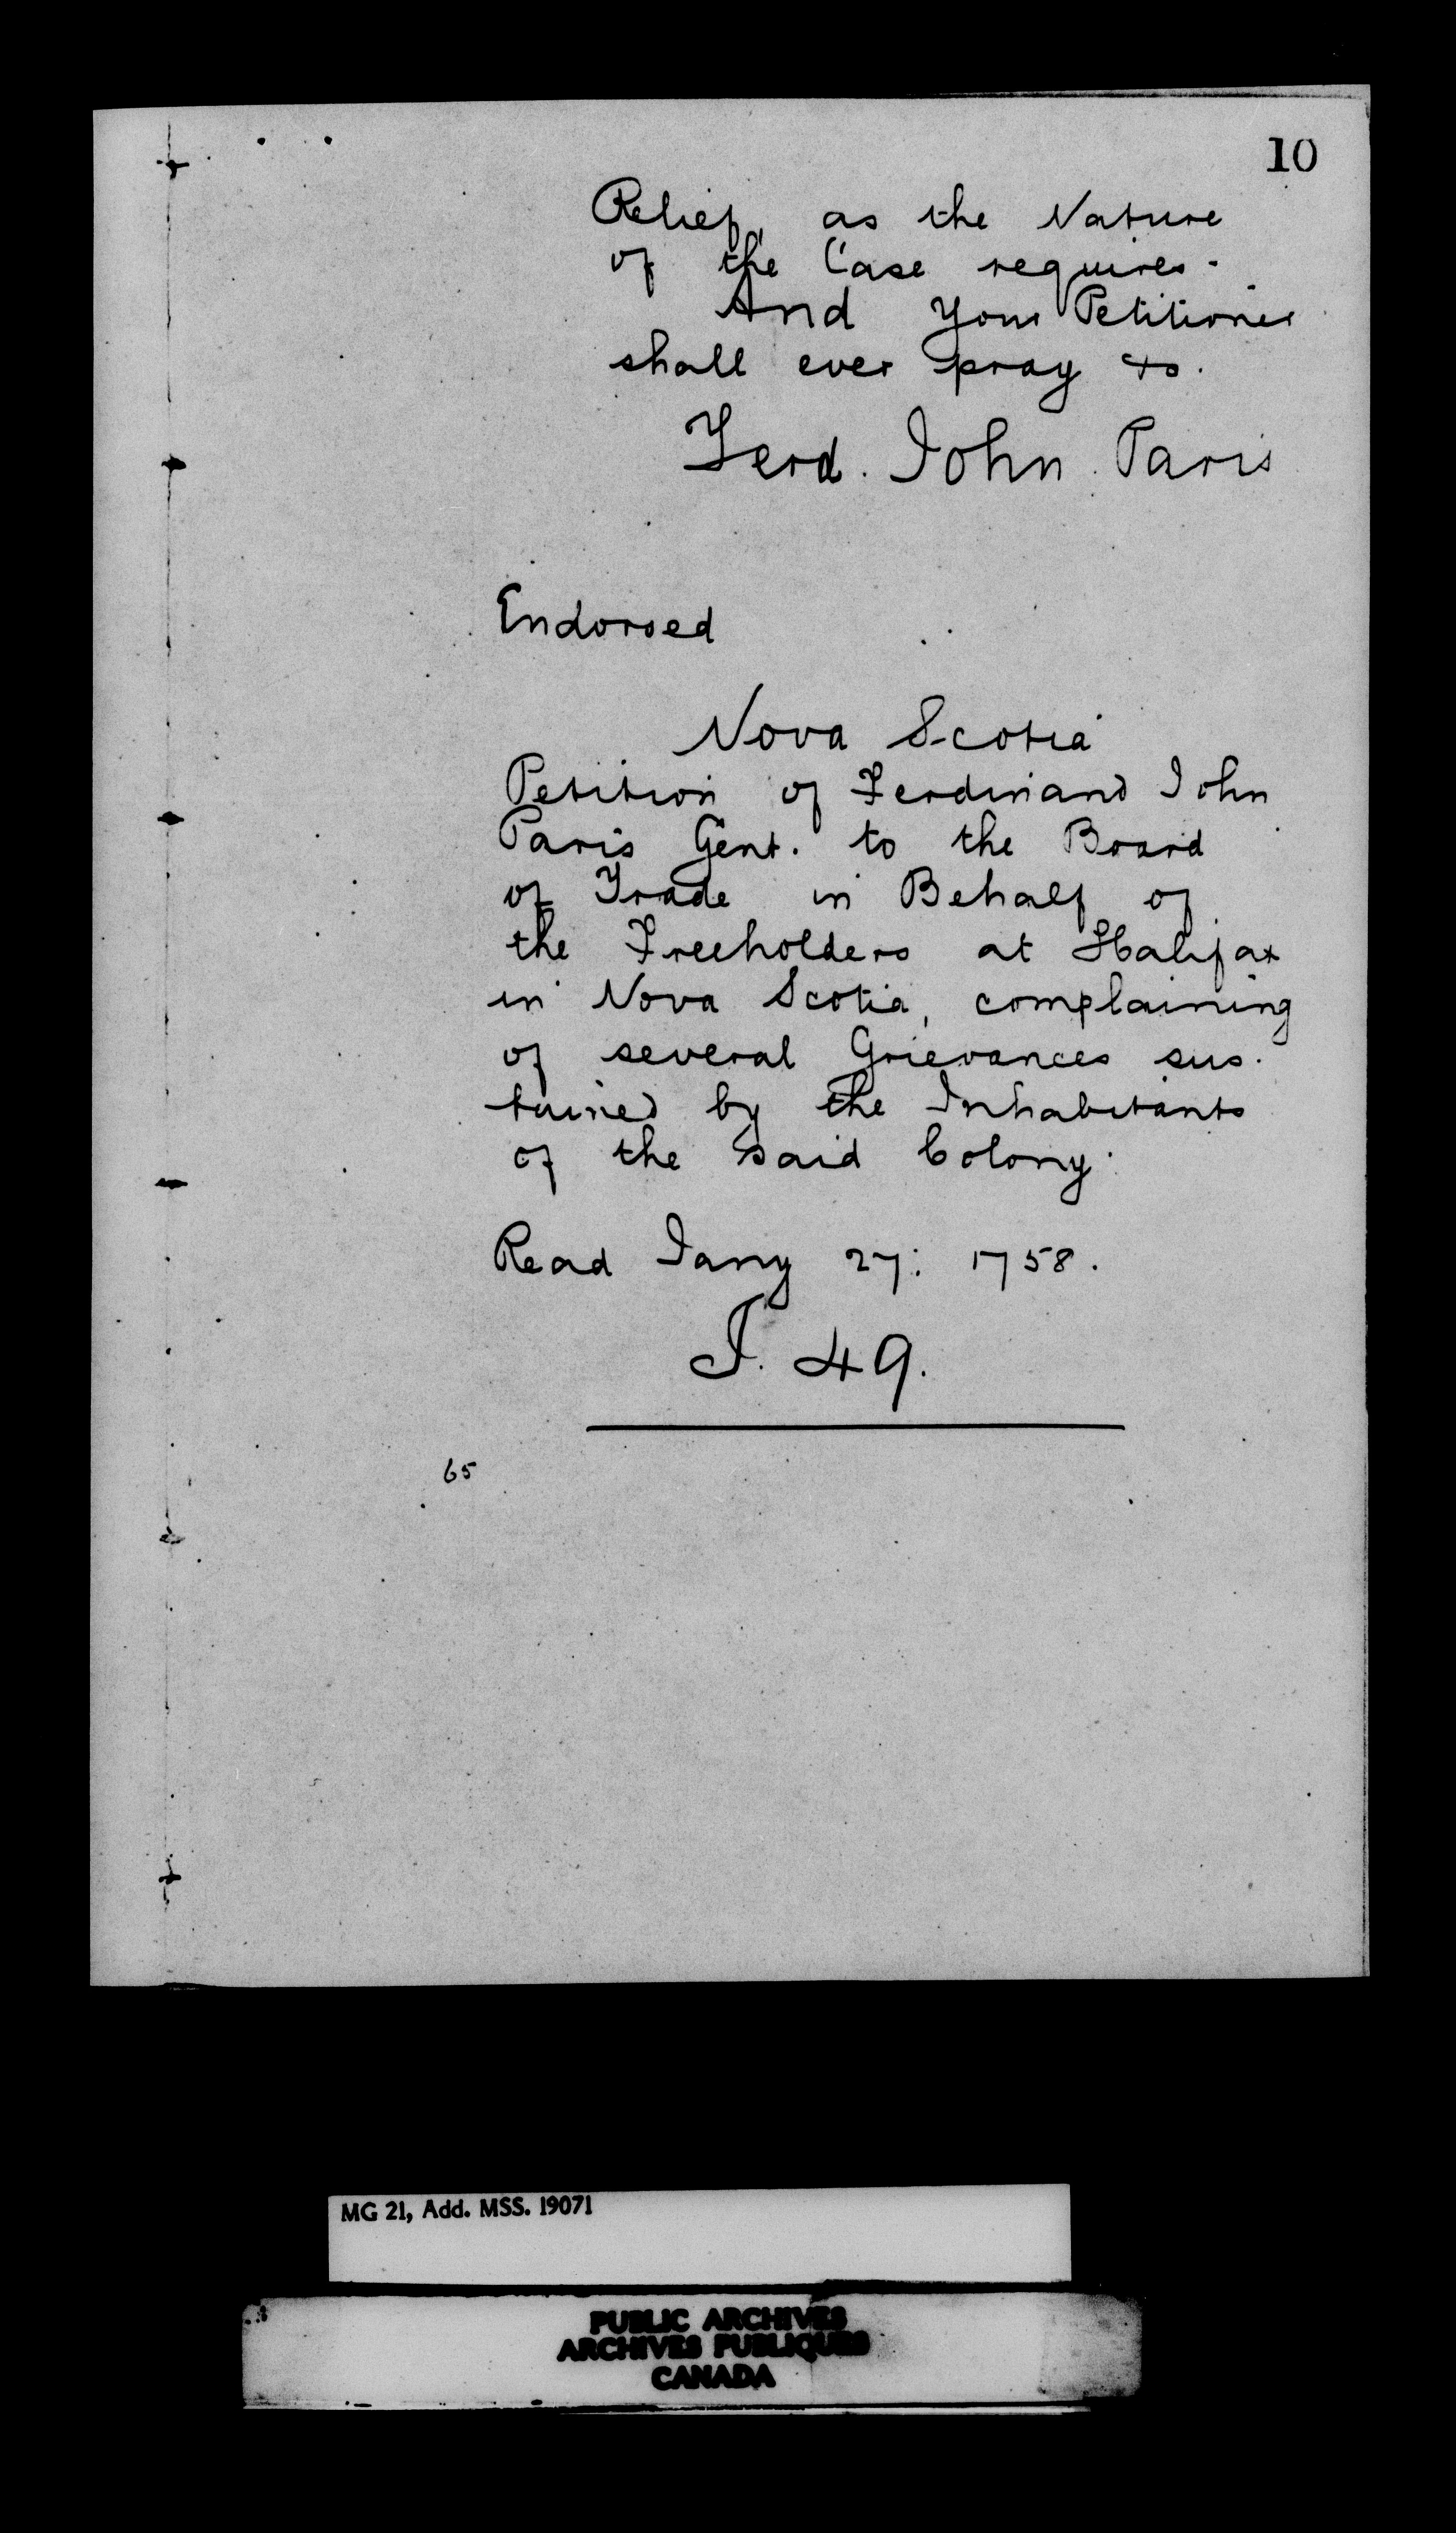 10
Relief, as the Nature
of the Case requires.
And your Petitioner
shall ever pray &c.
Ferd. John Paris
Endorsed
Nova Scotia
Petition of Ferdinand John
Paris Gent. to the Board
of Trade in Behalf of
the Freeholders at Halifax
in Nova Scotia, complaining
of several Grievances sus-
tained by the Inhabitants
of the said Colony.
Read Jany 27: 1758.
I. 49.
65
MG 21, Add. MSS. 19071
PUBLIC ARCHIVES
ARCHIVES PUBLIQUES
CANADA